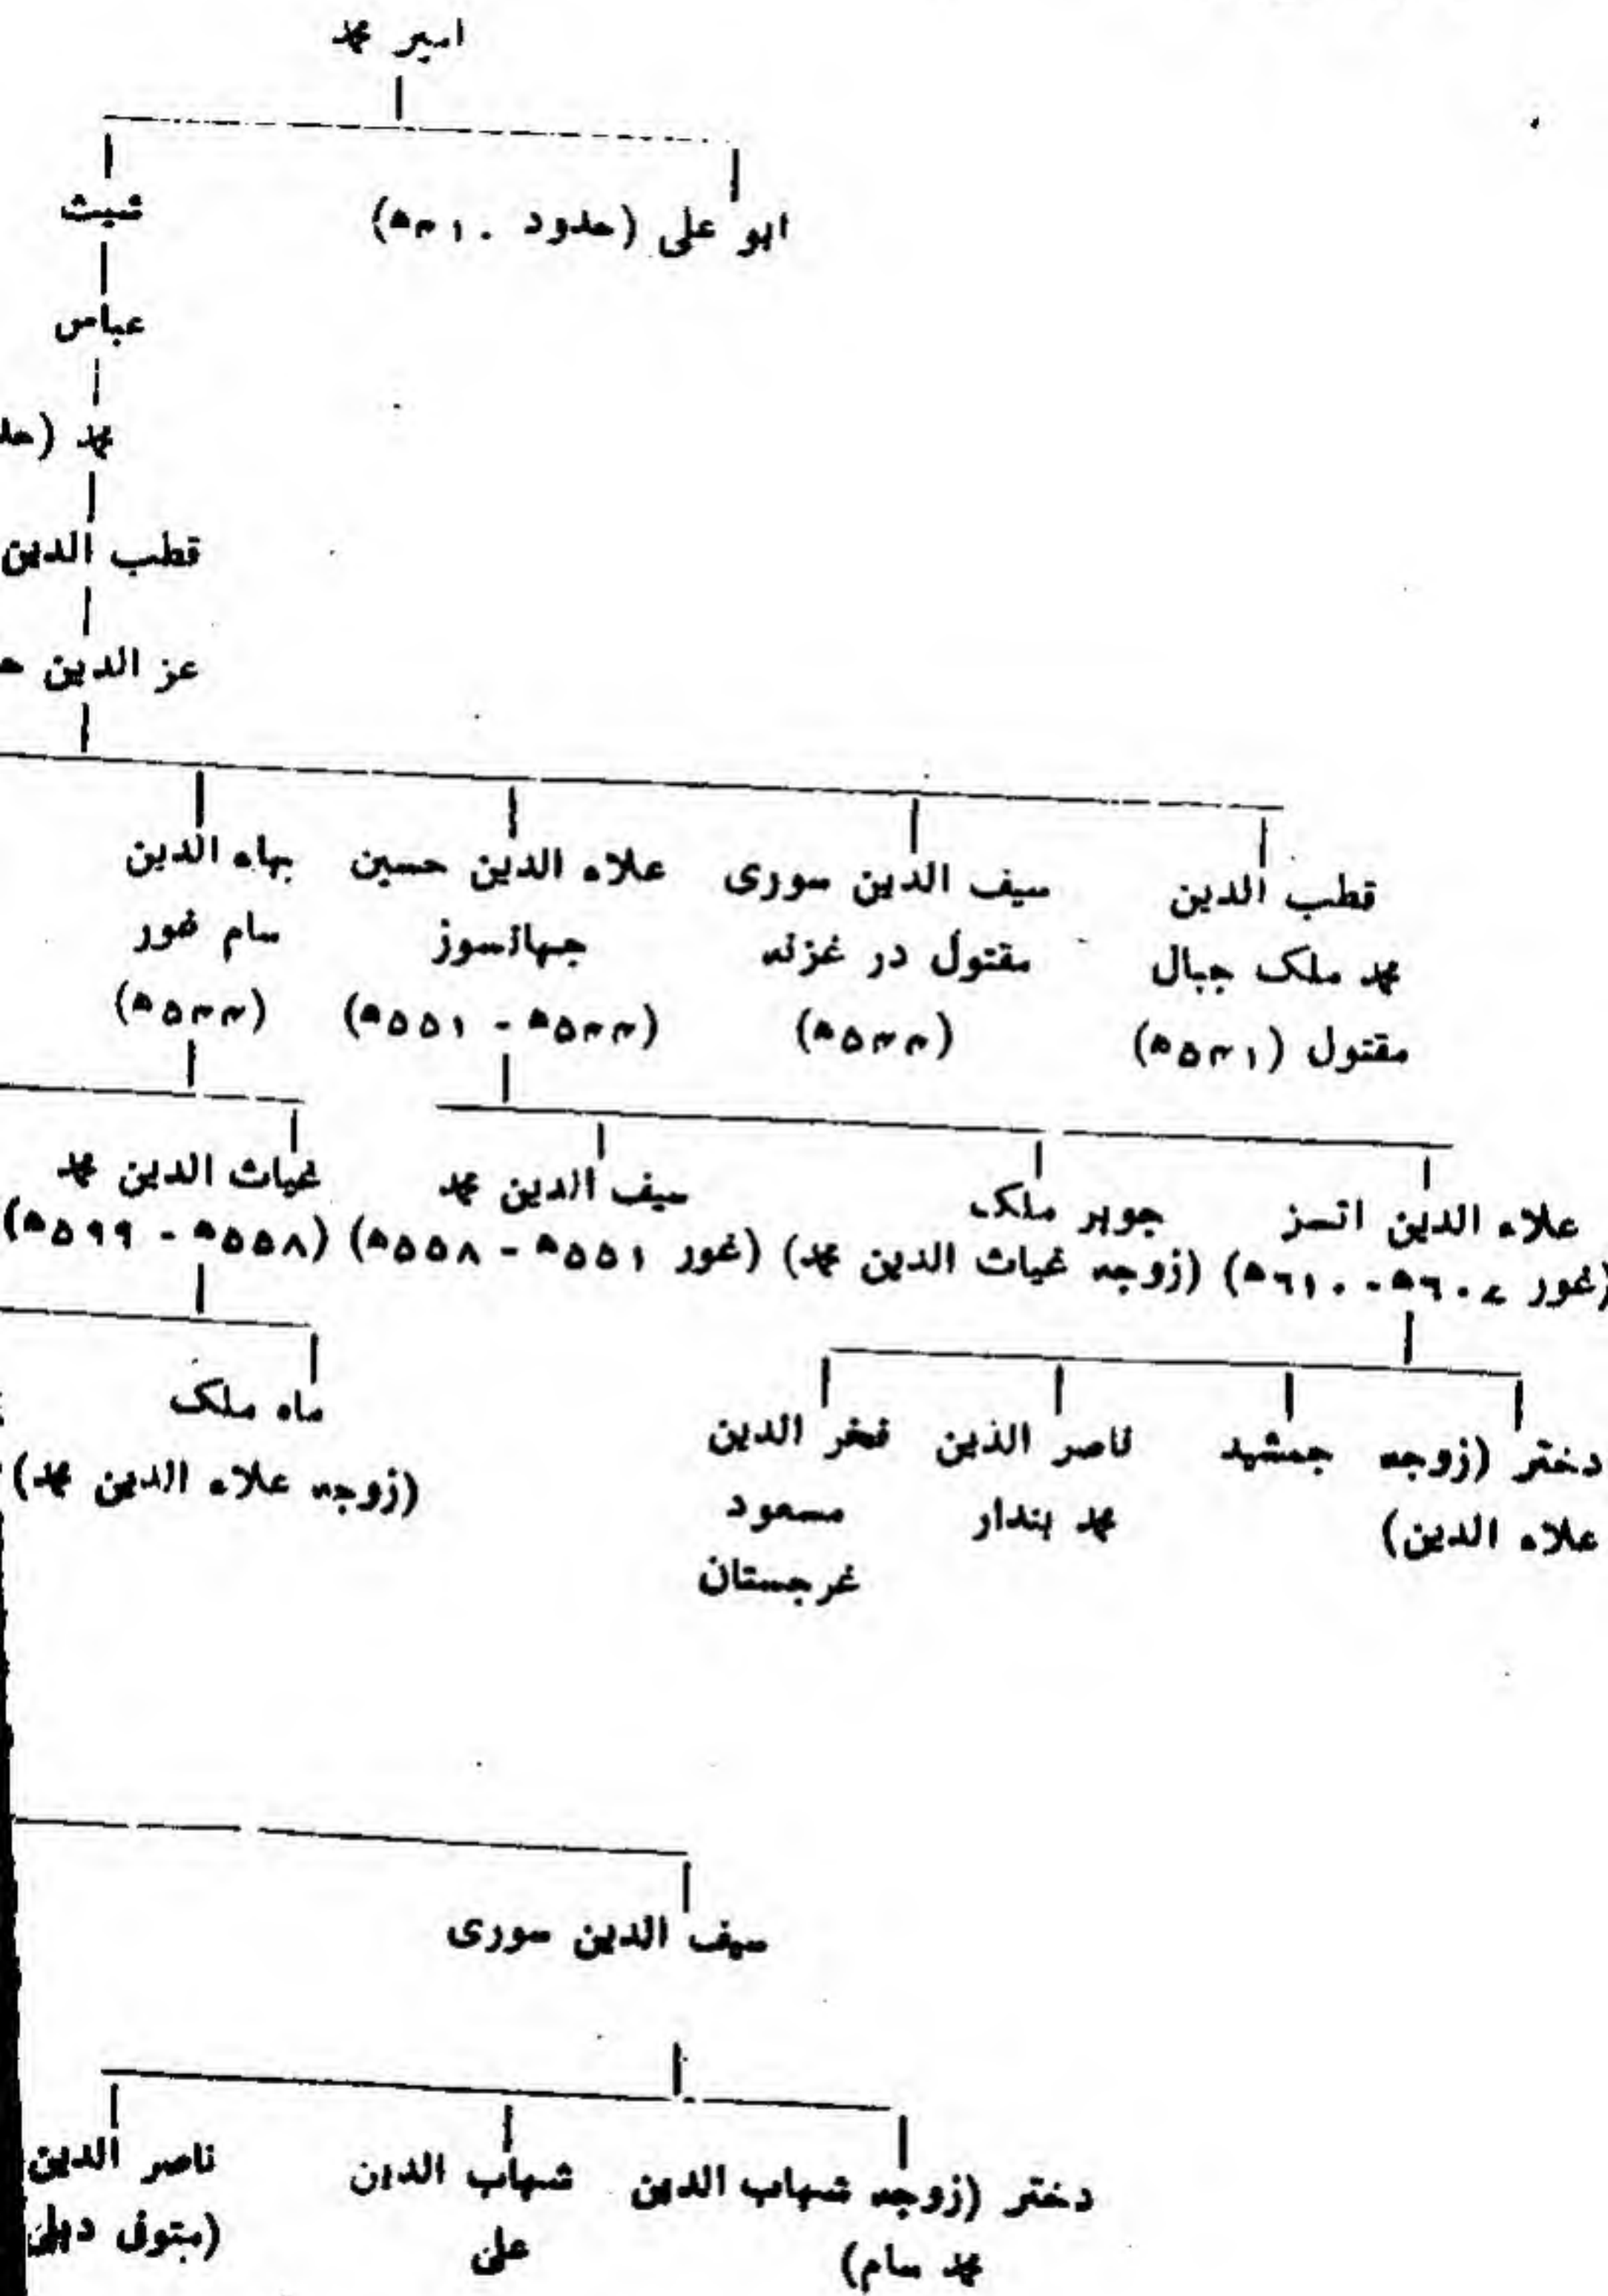 امیر محمد
ابو علی (حدود ۴۱۰ھ)
شیث
عباس
محمد
قطب الدین
عز الدین
قطب الدین
محمد ملک جبال
مقتول (۵۴۱ھ)
سیف الدین سوری
مقتول در غزنہ
(۵۴۴ھ)
علاء الدین حسین
جہانسوز
(۵۴۴ھ - ۵۵۱ھ)
بہاء الدین
سام غور
(۵۴۴ھ)
علاء الدین اتسز
(غور ۶۰۷ھ - ۶۱۰ھ)
جوہر ملک
(زوجہ غیاث الدین محمد)
سیف الدین محمد
(غور ۵۵۱ھ - ۵۵۸ھ)
غیاث الدین محمد
(۵۵۸ھ - ۵۹۹ھ)
دختر (زوجہ
علاء الدین)
جمشید
ناصر الدین
محمد بندار
فخر الدین
مسعود
غرجستان
ماہ ملک
(زوجہ علاء الدین محمد)
سیف الدین سوری
دختر (زوجہ شہاب الدین
محمد سام)
شہاب الدین
علی
ناصر الدین
(متوفی